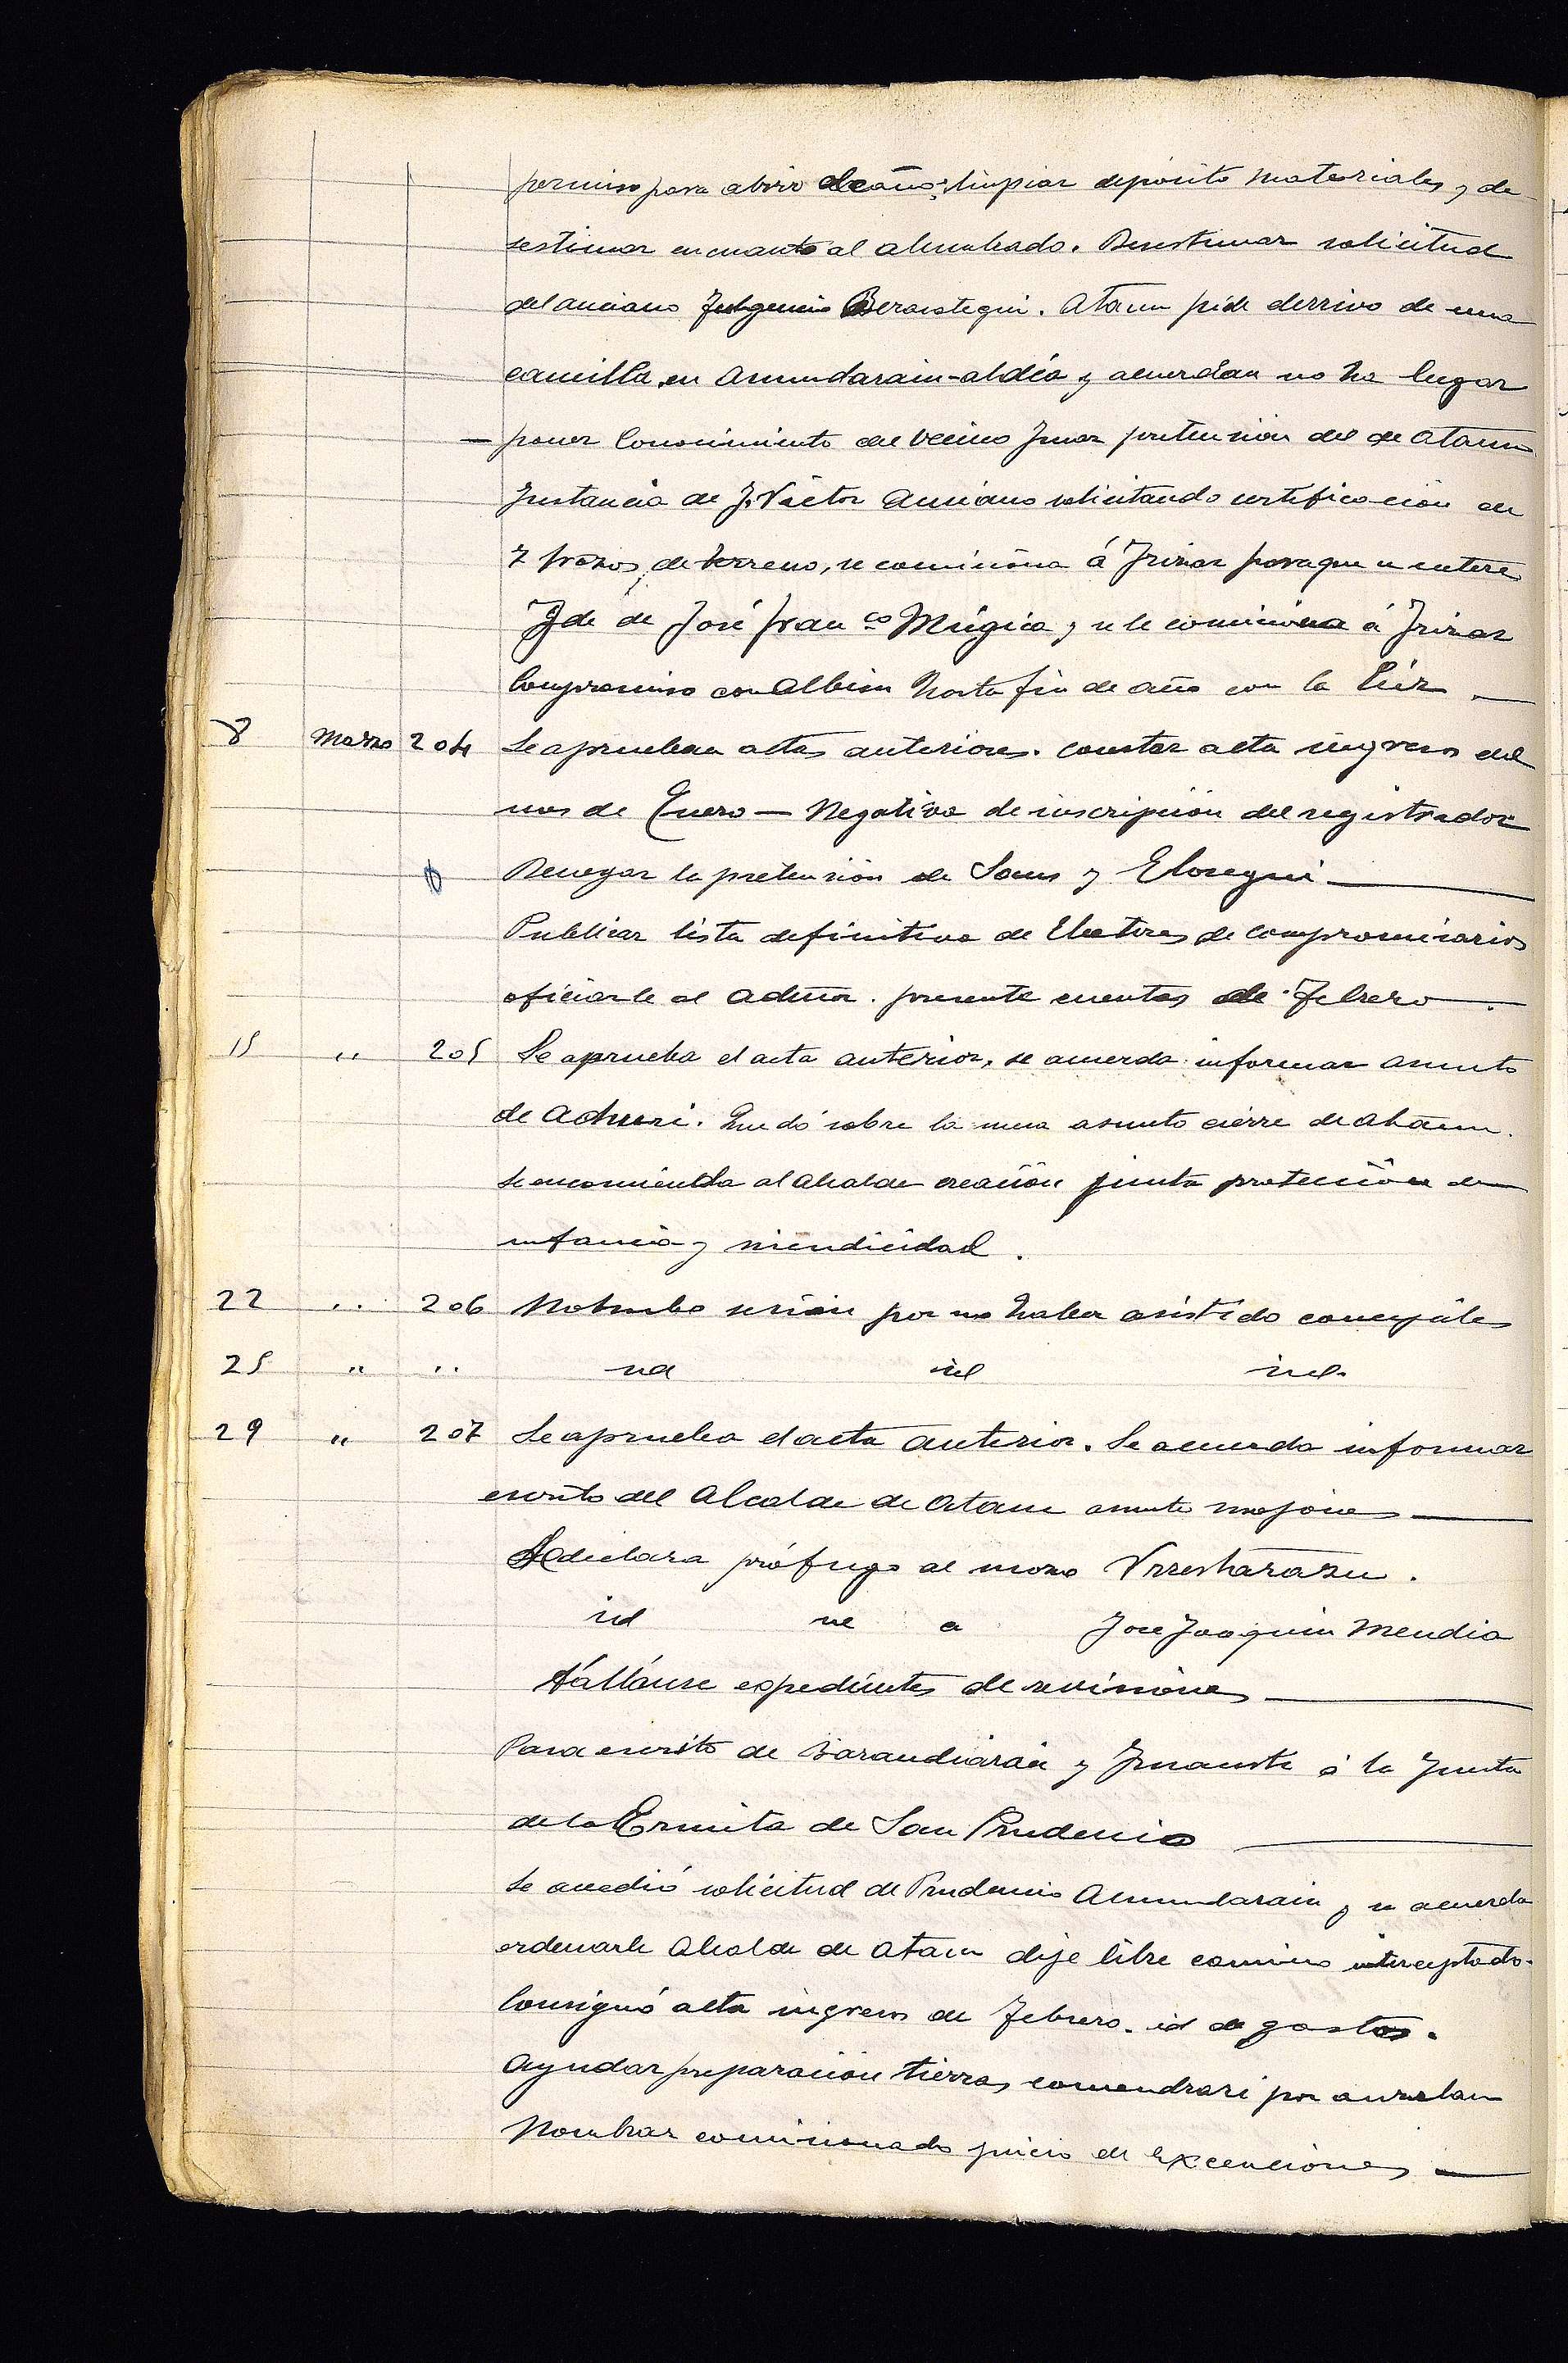 permiso para abrir de caño; limpiar deposito materiales y de
sestimar en cuanto al alumbrado. Desestimar solicitud
del anciano Fulgencio Beraestegui. Ataun pide derrivo de una
casilla en Amundarain-aldea y acuerdan no ha lugar
— poner conocimiento del vecino pretensión del de Ataun
Instancia de J. Victor Anciano solicitando certificación de
7 trozos de terreno, se comisiona á Irizar para que se entere
Id de José Franco Múgica y se le comisiona á Irizar
Compromiso con Albisu hasta fin de año con la luz —
8 Marzo 204 Se aprueban actas anteriores. constar acta ingresos del
mes de Enero — Negativa de inscripción del registrador
Denegar la pretensión de Saus y Elosegui —
Publicar lista definitiva de Electores de compromisarios
oficiarle al Admor. presente cuentas de Febrero —
15 " 205 Se aprueba el acta anterior, se acuerda informar asunto
de Aduriz. Quedó sobre la mesa asunto cierre de Ataun.
Se encomienda al Alcalde creación junta protección de
infancia y mendicidad.
22 " 206 No hubo sesión por no haber asistido concejales
25 " " id id id.
29 " 207 Se aprueba el acta anterior. Se acuerda informar
escrito del Alcalde de Ataun asunto mojones —
Se declara prófugo al mozo Urrestarazu.
id id a José Joaquin Mendia
Fállanse expedientes de revisiones —
Pasa escrito de Barandiarán y á la Junta
de la Ermita de San Prudencio —
Se accedió solicitud de Prudencio Amundarain y se acuerda
ordenarle Alcalde de Ataun deje libre camino interceptado.
Consignó acta ingresos de Febrero. id de gastos.
Ayudar preparación tierras por auzolan
Nombrar comisionado juicio de excenciones —